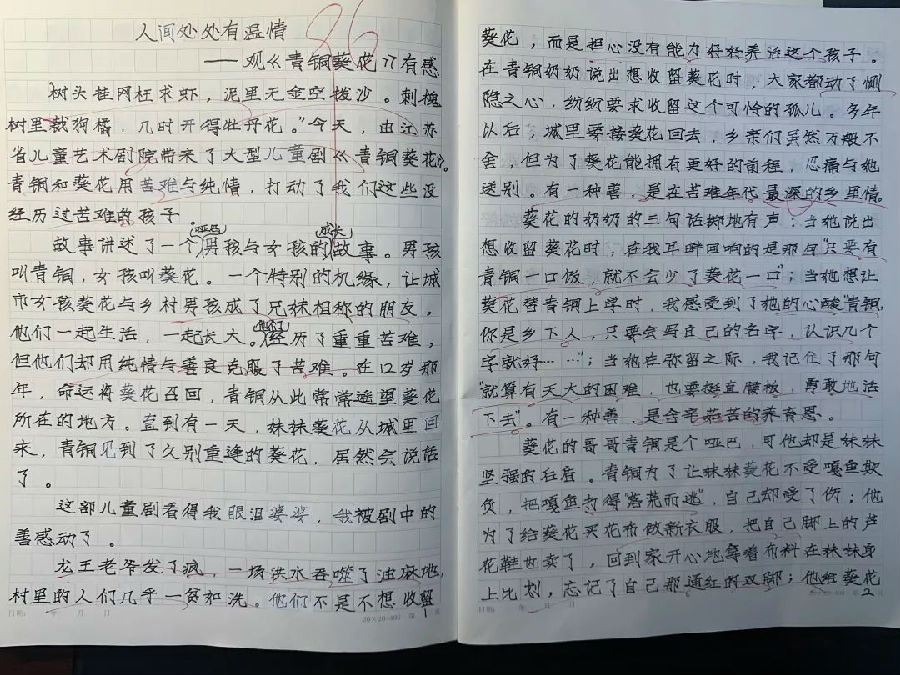 人间处处有温情
——观《青铜葵花》有感
86
树头挂网枉求虾，泥里无金空拨沙。刺槐
树里栽狗橘，几时开得牡丹花。"今天，由江苏
省儿童艺术剧院带来了大型儿童剧《青铜葵花》。
青铜和葵花用苦难与纯情，打动了我们这些没
经历过苦难的孩子
故事讲述了一个(哑巴)男孩与女孩的(成长)故事。男孩
叫青铜，女孩叫葵花。一个特别的机缘，让城
市女孩葵花与乡村男孩成了兄妹相称的朋友，
他们一起生活，一起长大。(他们)经历了重重苦难，
但他们却用纯情与善良克服了苦难。在12岁那
年，命运将葵花召回，青铜从此常常遥望葵花
所在的地方。直到有一天，妹妹葵花从城里回
来，青铜见到了久别重逢的葵花，居然会说话
了。
这部儿童剧看得我眼泪婆娑，我被剧中的
善感动了。
龙王老爷发了疯，一场洪水吞噬了油麻地，
村里的人们几乎一贫如洗。他们不是不想收留
日期： 年 月 日
20×20=400 第1页
葵花，而是担心没有能力好好养活这个孩子。
在青铜奶奶说出想收留葵花时，大家都动了恻
隐之心，纷纷要求收留这个可怜的孤儿。多年
以后，城里要接葵花回去，乡亲们虽然万般不
舍，但为了葵花能拥有更好的前程，忍痛与她
送别。有一种善，是在苦难年代最深的乡里情。
葵花的奶奶的三句话掷地有声：当她说出
想收留葵花时，在我耳畔回响的是那句"只要有
青铜一口饭，就不会少了葵花一口"；当她想让
葵花替青铜上学时，我感受到了她的心酸"青铜，
你是乡下人，只要会写自己的名字，认识几个
字就好……"；当她在弥留之际，我记住了那句
"就算有天大的困难，也要挺直腰板，勇敢地活
下去"。有一种善，是含辛茹苦的养育恩。
葵花的哥哥青铜是个哑巴，可他却是妹妹
坚强的右盾。青铜为了让妹妹葵花不受嘎鱼欺
负，把嘎鱼打得"落荒而逃"，自己却受了伤；他
为了给葵花买花布做新衣服，把自己脚上的芦
花鞋也卖了，回到家开心地拿着布料在妹妹身
上比划，忘记了自己那通红的双脚；他给葵花
日期： 年 月 日
2